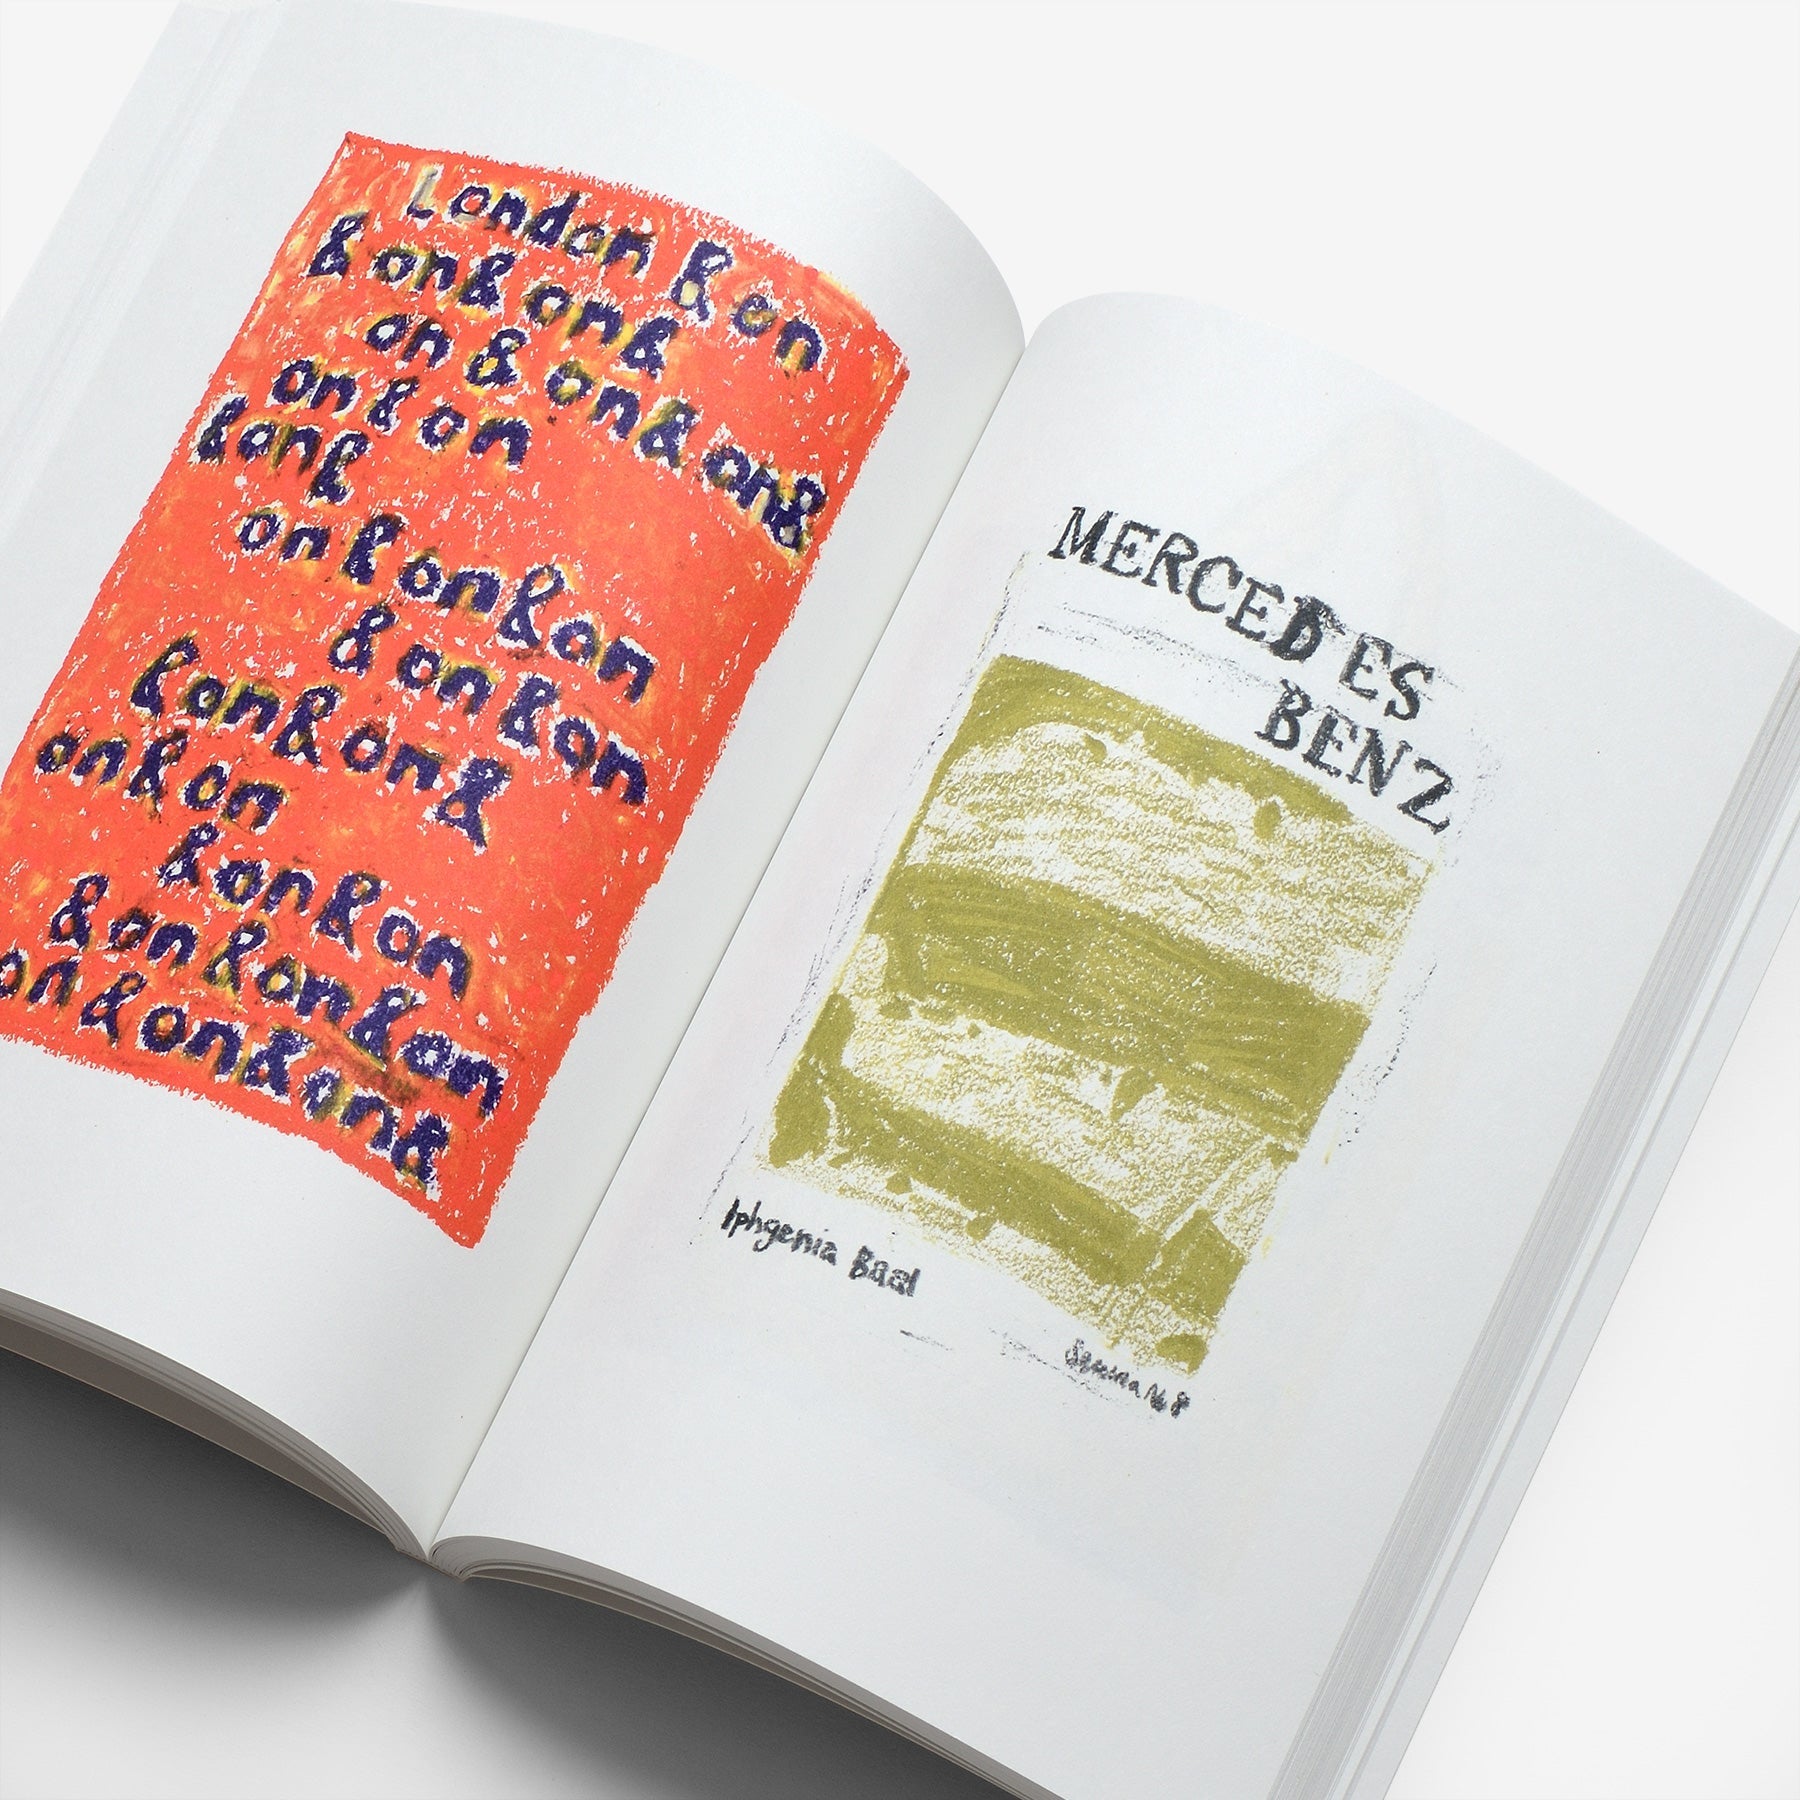 London & on
& on & on &
on & on & on &
on & on
& on &
on & on & on
& on & on
& on & on &
on & on
& on & on
& on & on & on
on & on & on &
MERCEDES
BENZ
Iphgenia Baal
Semina № 8